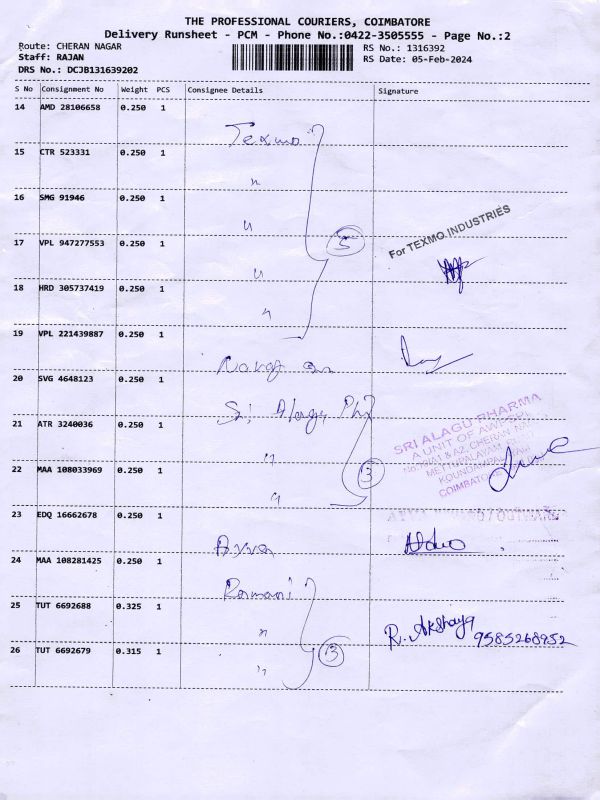 THE PROFESSIONAL COURIERS, COIMBATORE
Delivery Runsheet - PCM - Phone No.:0422-3505555 - Page No.:2
Route: CHERAN NAGAR RS No.: 1316392
Staff: RAJAN RS Date: 05-Feb-2024
DRS No.: DCJB131639202
S No Consignment No Weight PCS Consignee Details Signature
14 AMD 28106658 0.250 1
Texmo
15 CTR 523331 0.250 1
"
16 SMG 91946 0.250 1
"
For TEXMO INDUSTRIES
5
17 VPL 947277553 0.250 1
"
18 HRD 305737419 0.250 1
"
19 VPL 221439887 0.250 1
20 SVG 4648123 0.250 1
Sri Alagu Ph
21 ATR 3240036 0.250 1
"
SRI ALAGU PHARMA
A UNIT OF
COIMBATORE
22 MAA 108033969 0.250 1
3
"
23 EDQ 16662678 0.250 1
24 MAA 108281425 0.250 1
25 TUT 6692688 0.325 1
"
R. Akshaya
9585268952
26 TUT 6692679 0.315 1
3
"